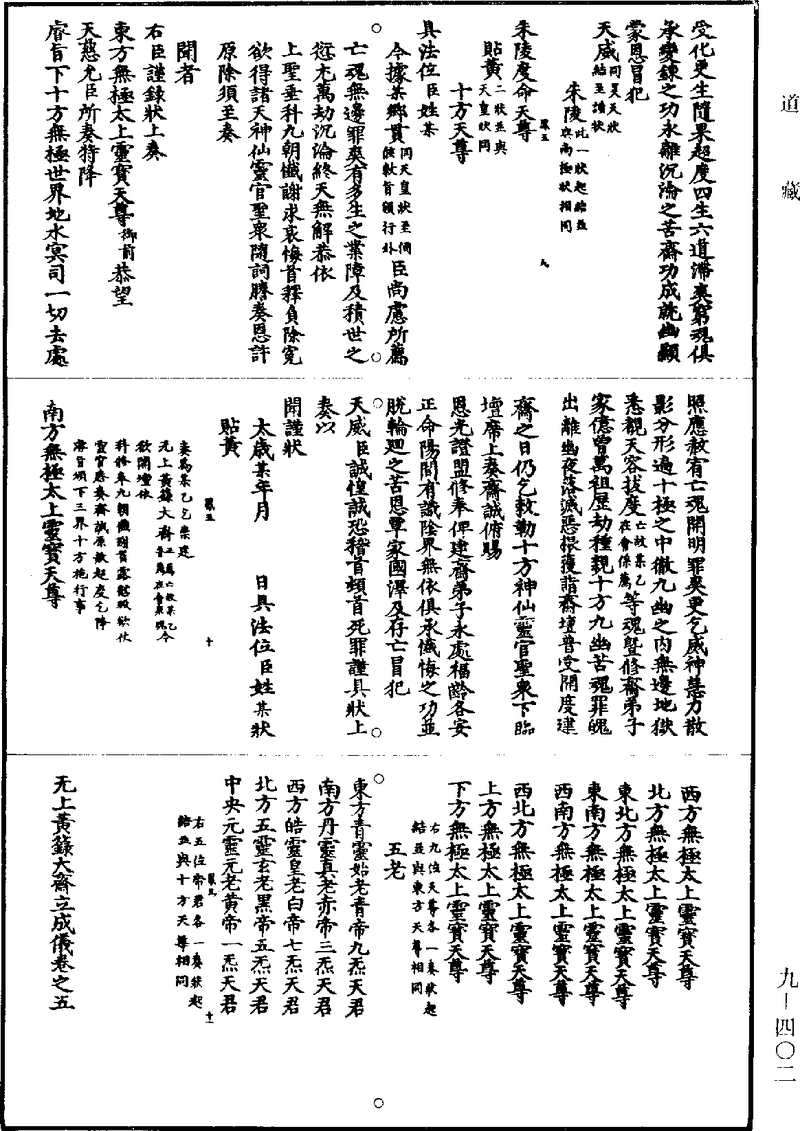 道藏
受化更生隨果超度四生六道滯爽窮魂俱
承變鍊之功永離沉淪之苦齋功成就幽顯
蒙恩冒犯
天威同昊天狀結至謹狀
朱陵此一狀起結並與南極狀相同
朱陵度命天尊
貼黃二狀並與天皇狀同
十方天尊
具法位臣姓某
今據某鄉貫同天皇狀至俯臣尚慮所薦
亡魂無邊罪爽有多生之業障及積世之
愆尤萬劫沉淪終天無解恭依
上聖垂科九朝懺謝求哀悔首釋負除冤
欲得諸天神仙靈官聖衆隨詞謄奏恩許
原除須至奏
聞者
右臣謹錄狀上奏
東方無極太上靈寶天尊御前恭望
天慈允臣所奏特降
睿旨下十方無極世界地水冥司一切去處
照應赦宥亡魂開明罪爽更乞威神慧力散
影分形遍十極之中徹九幽之內無邊地獄
悉覩天容拔度亡故某乙在會係薦等魂曁修齋弟子
家億曾萬祖歷劫種親十方九幽苦魂罪魄
出離幽夜落滅惡根獲詣齋壇普受開度建
齋之日仍乞敕勒十方神仙靈官聖衆下臨
壇席上奏齋誠俯賜
恩光證盟修奉俾建齋弟子永處福齡各安
正命陽間有識陰界無依俱承懺悔之功並
脫輪廻之苦恩覃家國澤及存亡冒犯
天威臣誠惶誠恐稽首頓首死罪謹具狀上
奏以
聞謹狀
太歲某年月 日具法位臣姓某狀
貼黃
奏爲某乙乞崇建
无上黃籙大齋
欲開壇依
科修奉九朝懺謝首露愆瑕欲仗
靈官應奏齋誠原赦超度乞降
睿旨頒下三界十方施行事
南方無極太上靈寶天尊
西方無極太上靈寶天尊
北方無極太上靈寶天尊
東北方無極太上靈寶天尊
東南方無極太上靈寶天尊
西南方無極太上靈寶天尊
西北方無極太上靈寶天尊
上方無極太上靈寶天尊
下方無極太上靈寶天尊
右九位天尊各一奏狀起
結並與東方天尊相同
五老
東方青靈始老青帝九炁天君
南方丹靈真老赤帝三炁天君
西方皓靈皇老白帝七炁天君
北方五靈玄老黑帝五炁天君
中央元靈元老黃帝一炁天君
右五位帝君各一奏狀起
結並與十方天尊相同
无上黃籙大齋立成儀卷之五
九-四〇二